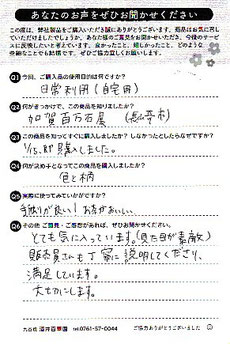 あなたのお声をぜひお聞かせください
この度は、弊社製品をご購入いただき誠にありがとうございます。商品はお気に召し
ていただけましたでしょうか。あなた様のご意見をお聞かせいただき、今後のサービ
スに反映したいと考えています。良かったこと、嬉しかったこと、どのような
些細なことでも結構です。ぜひ、ご協力宜しくお願いします。
Q1 今回、ご購入品の使用目的は何ですか?
日常利用(自宅用)
Q2 何がきっかけで、この商品を知りましたか?
加賀百万石屋
Q3 この商品を知ってすぐに購入しましたか?しなかったとしたらなぜですか?
1/15.即購入しました。
Q4 何が決め手となってこの商品を購入しましたか?
色と柄
Q5 実際に使ってみていかがですか?
手触りが良い!お茶がおいしい
Q6 その他 ご意見・ご感想があれば、ぜひお聞かせください。
とても気に入っています。(見た目が素敵)
販売員さんも丁寧に説明してくださり、
満足しています。
大切にします。
九谷焼 酒井百華園 Tel.0761-57-0044 ご協力ありがとうございました